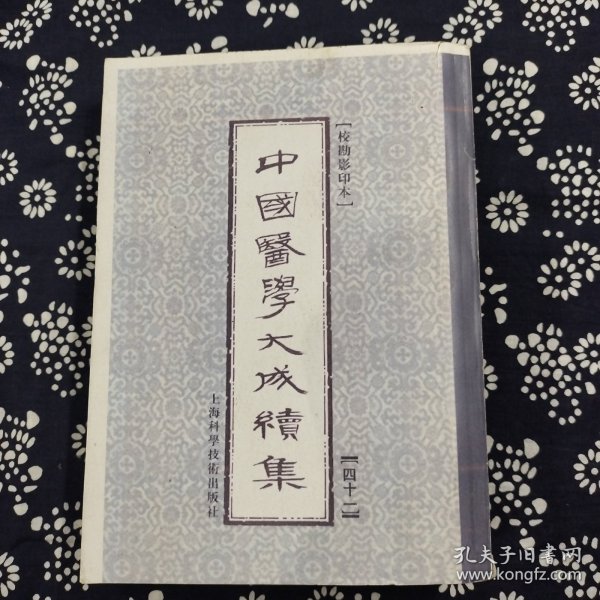 [校勘影印本]
中國醫學大成續集
【四十二】
上海科學技術出版社
孔夫子旧书网
www.kongfz.com